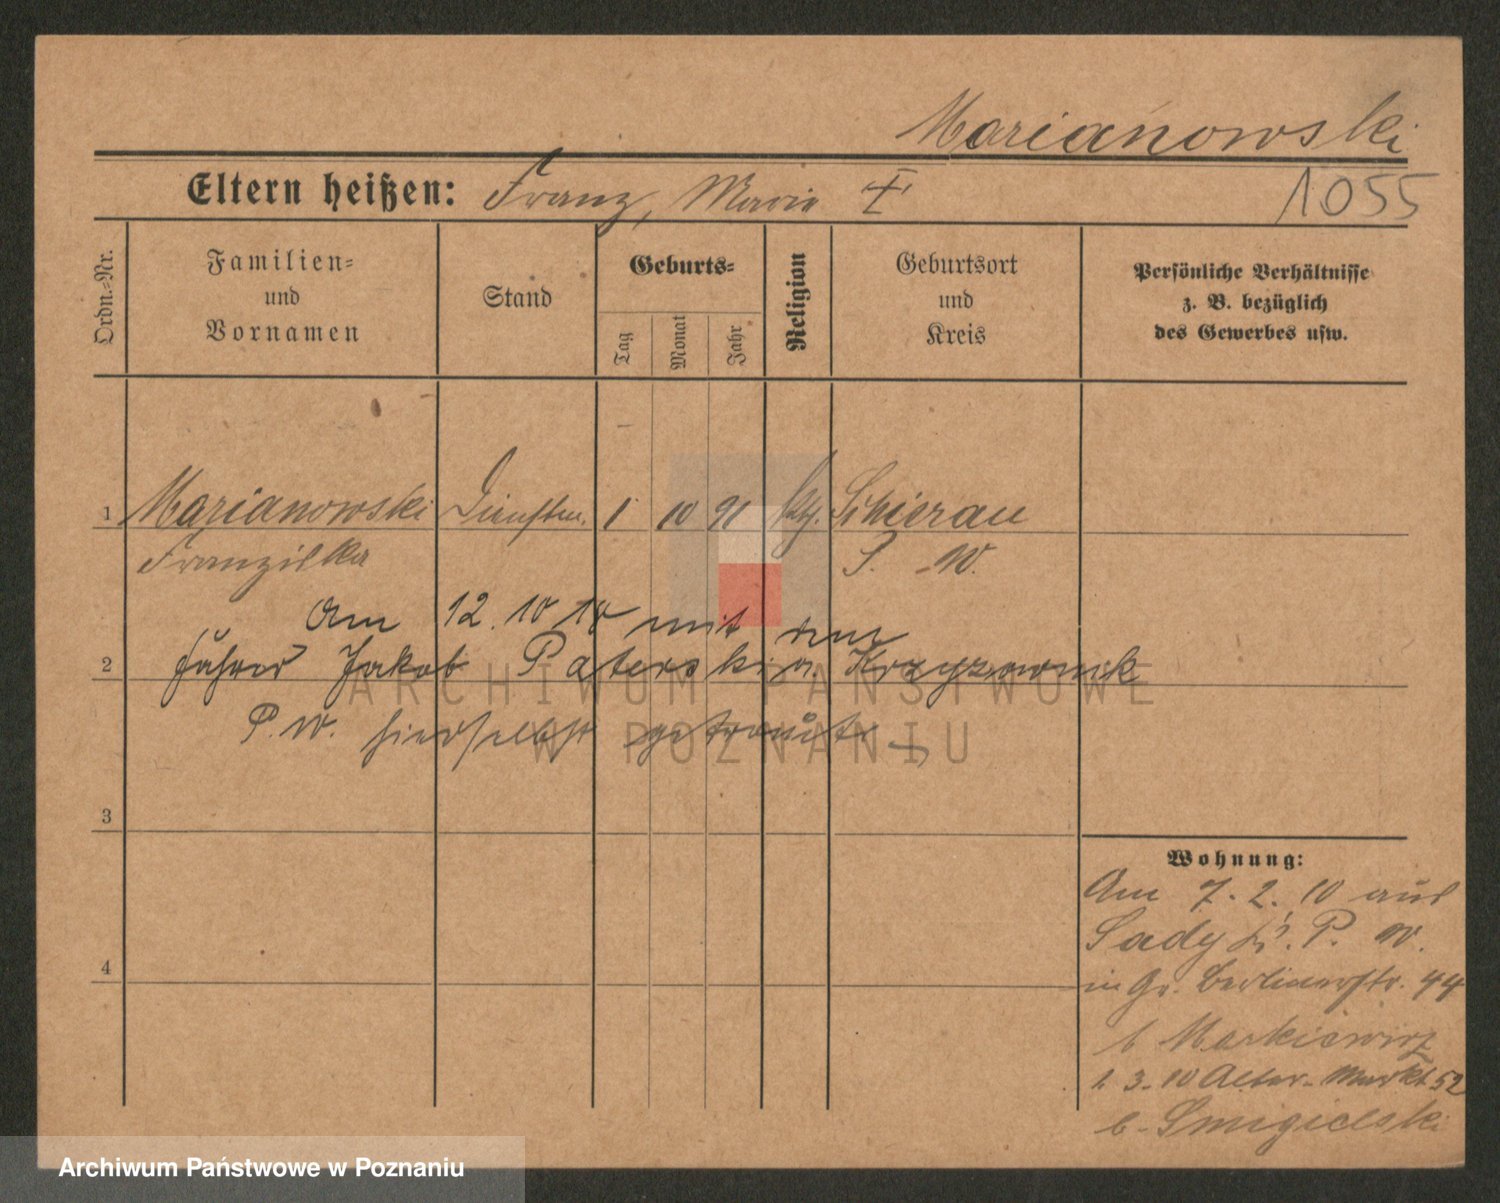 Marianowski
Eltern heißen: Franz, Marie
1055
Ordn.=Nr.
Familien=
und
Vornamen
Stand
Geburts=
Tag
Monat
Jahr
Religion
Geburtsort
und
Kreis
Persönliche Verhältnisse
z. B. bezüglich
des Gewerbes usw.
1 Marianowski Dienstm. 1 10 91 kth. Schierau
Franziska P. W.
Am 12. 10 10 mit dem
2 Jakob Paterski a.
P. W. hierselbst getraut.
3
4
Wohnung:
Am 7. 2. 10 aus
Sady Kr. P. W.
in Gr. Berlinerstr. 44
b Markiewicz
1. 3. 10 Alter-Markt 52
b. Smigielski
ARCHIWUM PAŃSTWOWE
W POZNANIU
Archiwum Państwowe w Poznaniu